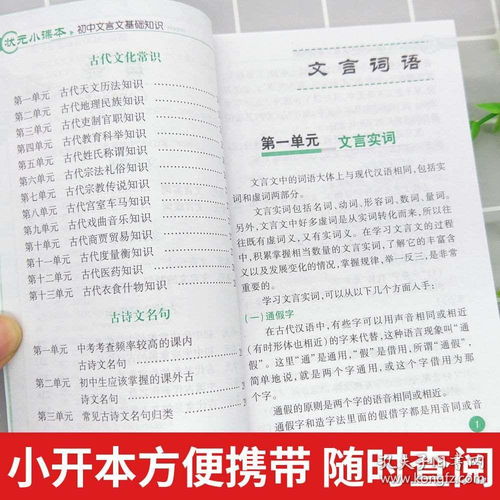 状元小课本 初中文言文基础知识
古代文化常识
第一单元 古代天文历法知识
第二单元 古代地理民族知识
第三单元 古代吏制官职知识
第四单元 古代教育科举知识
第五单元 古代姓氏称谓知识
第六单元 古代宗法礼俗知识
第七单元 古代宗教传说知识
第八单元 古代宫室车马知识
第九单元 古代戏曲音乐知识
第十单元 古代商贾贸易知识
第十一单元 古代度量衡知识
第十二单元 古代医药知识
第十三单元 古代衣食什物知识
古诗文名句
第一单元 中考考查频率较高的课内
古诗文名句
第二单元 初中生应该掌握的课外古
诗文名句
第三单元 常见古诗文名句归类
文言词语
第一单元 文言实词
文言文中的词语大体上与现代汉语相同,包括实
词和虚词两部分。
文言实词包括名词、动词、形容词、数词、量词。
另外,文言文中好多虚词是从实词转化而来,所以往
往既有虚词义,又有实词义。在学习文言文的过程
中,积累掌握相当数量的文言实词,了解它的丰富含
义以及发展变化的情况,掌握规律,举一反三,是非常
重要的。
学习文言实词,可以从以下几个方面入手:
(一)通假字
在古代汉语中,有些字可以用声音相同或相近
(有时形体也相近)的字来代替,这种语言现象叫“通
假”。这里“通”是通用,“假”是借用,所谓“通假”,
简单地说,就是两个字通用,或这个字借用为那
个字。
通假的原则是两个字的语音相同或相近。
通假字和造字法里面的假借字都是用音同或音
1
小开本方便携带 随时查阅
www.kongfz.com